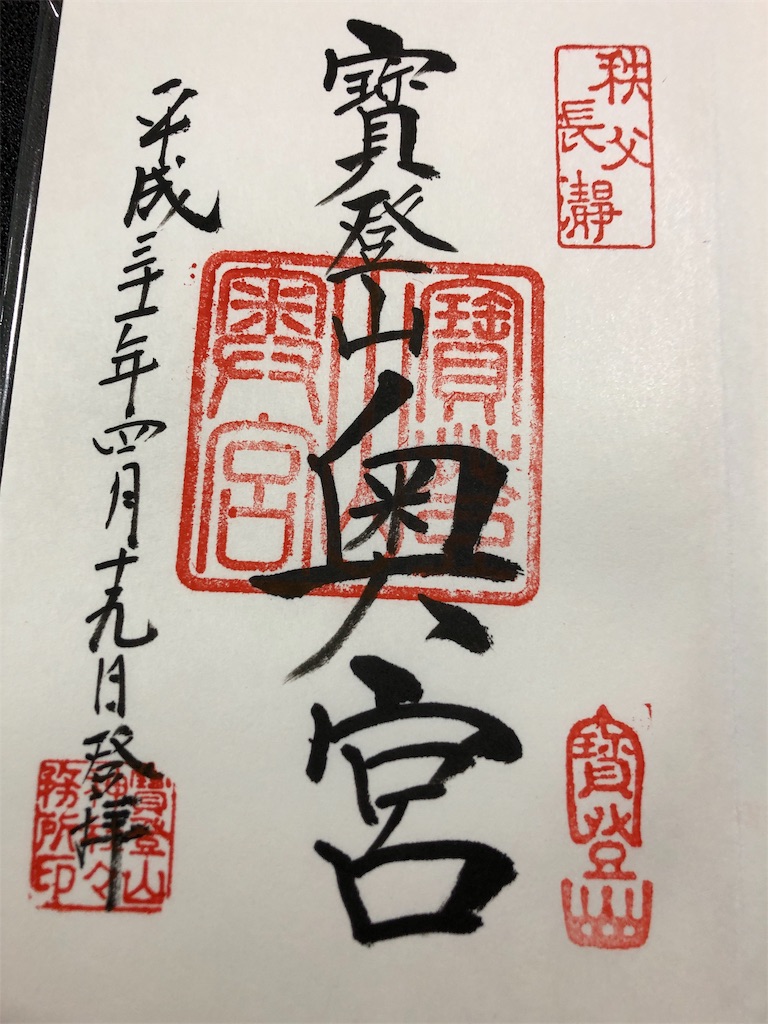 秩父
長瀞
寶登山
寶登山奥宮
奥宮
平成三十一年四月十九日登拝
寶登山
神社々
務所印